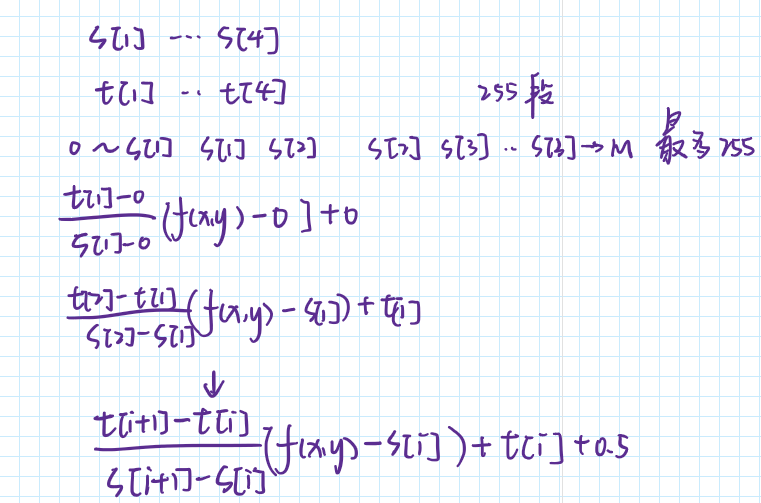 s[1] ... s[4]
t[1] .. t[4]
255 段
0 ~ s[1] s[1] s[2] s[2] s[3] .. s[3] → M 最多 255
\frac{t[1]-0}{s[1]-0} (f(x,y) - 0] + 0
\frac{t[2]-t[1]}{s[2]-s[1]} (f(x,y) - s[1]) + t[1]
↓
\frac{t[i+1]-t[i]}{s[i+1]-s[i]} (f(x,y) - s[i]) + t[i] + 0.5